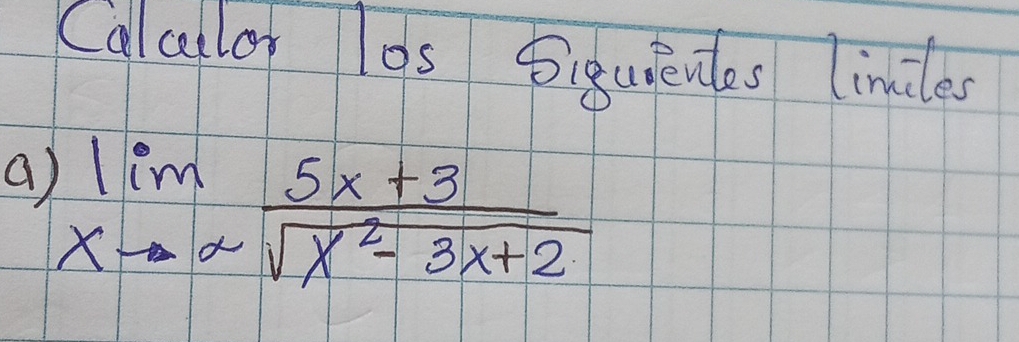 Calcular los Siguientes limites
a) lim 5x + 3
x → ∝ √x² - 3x + 2